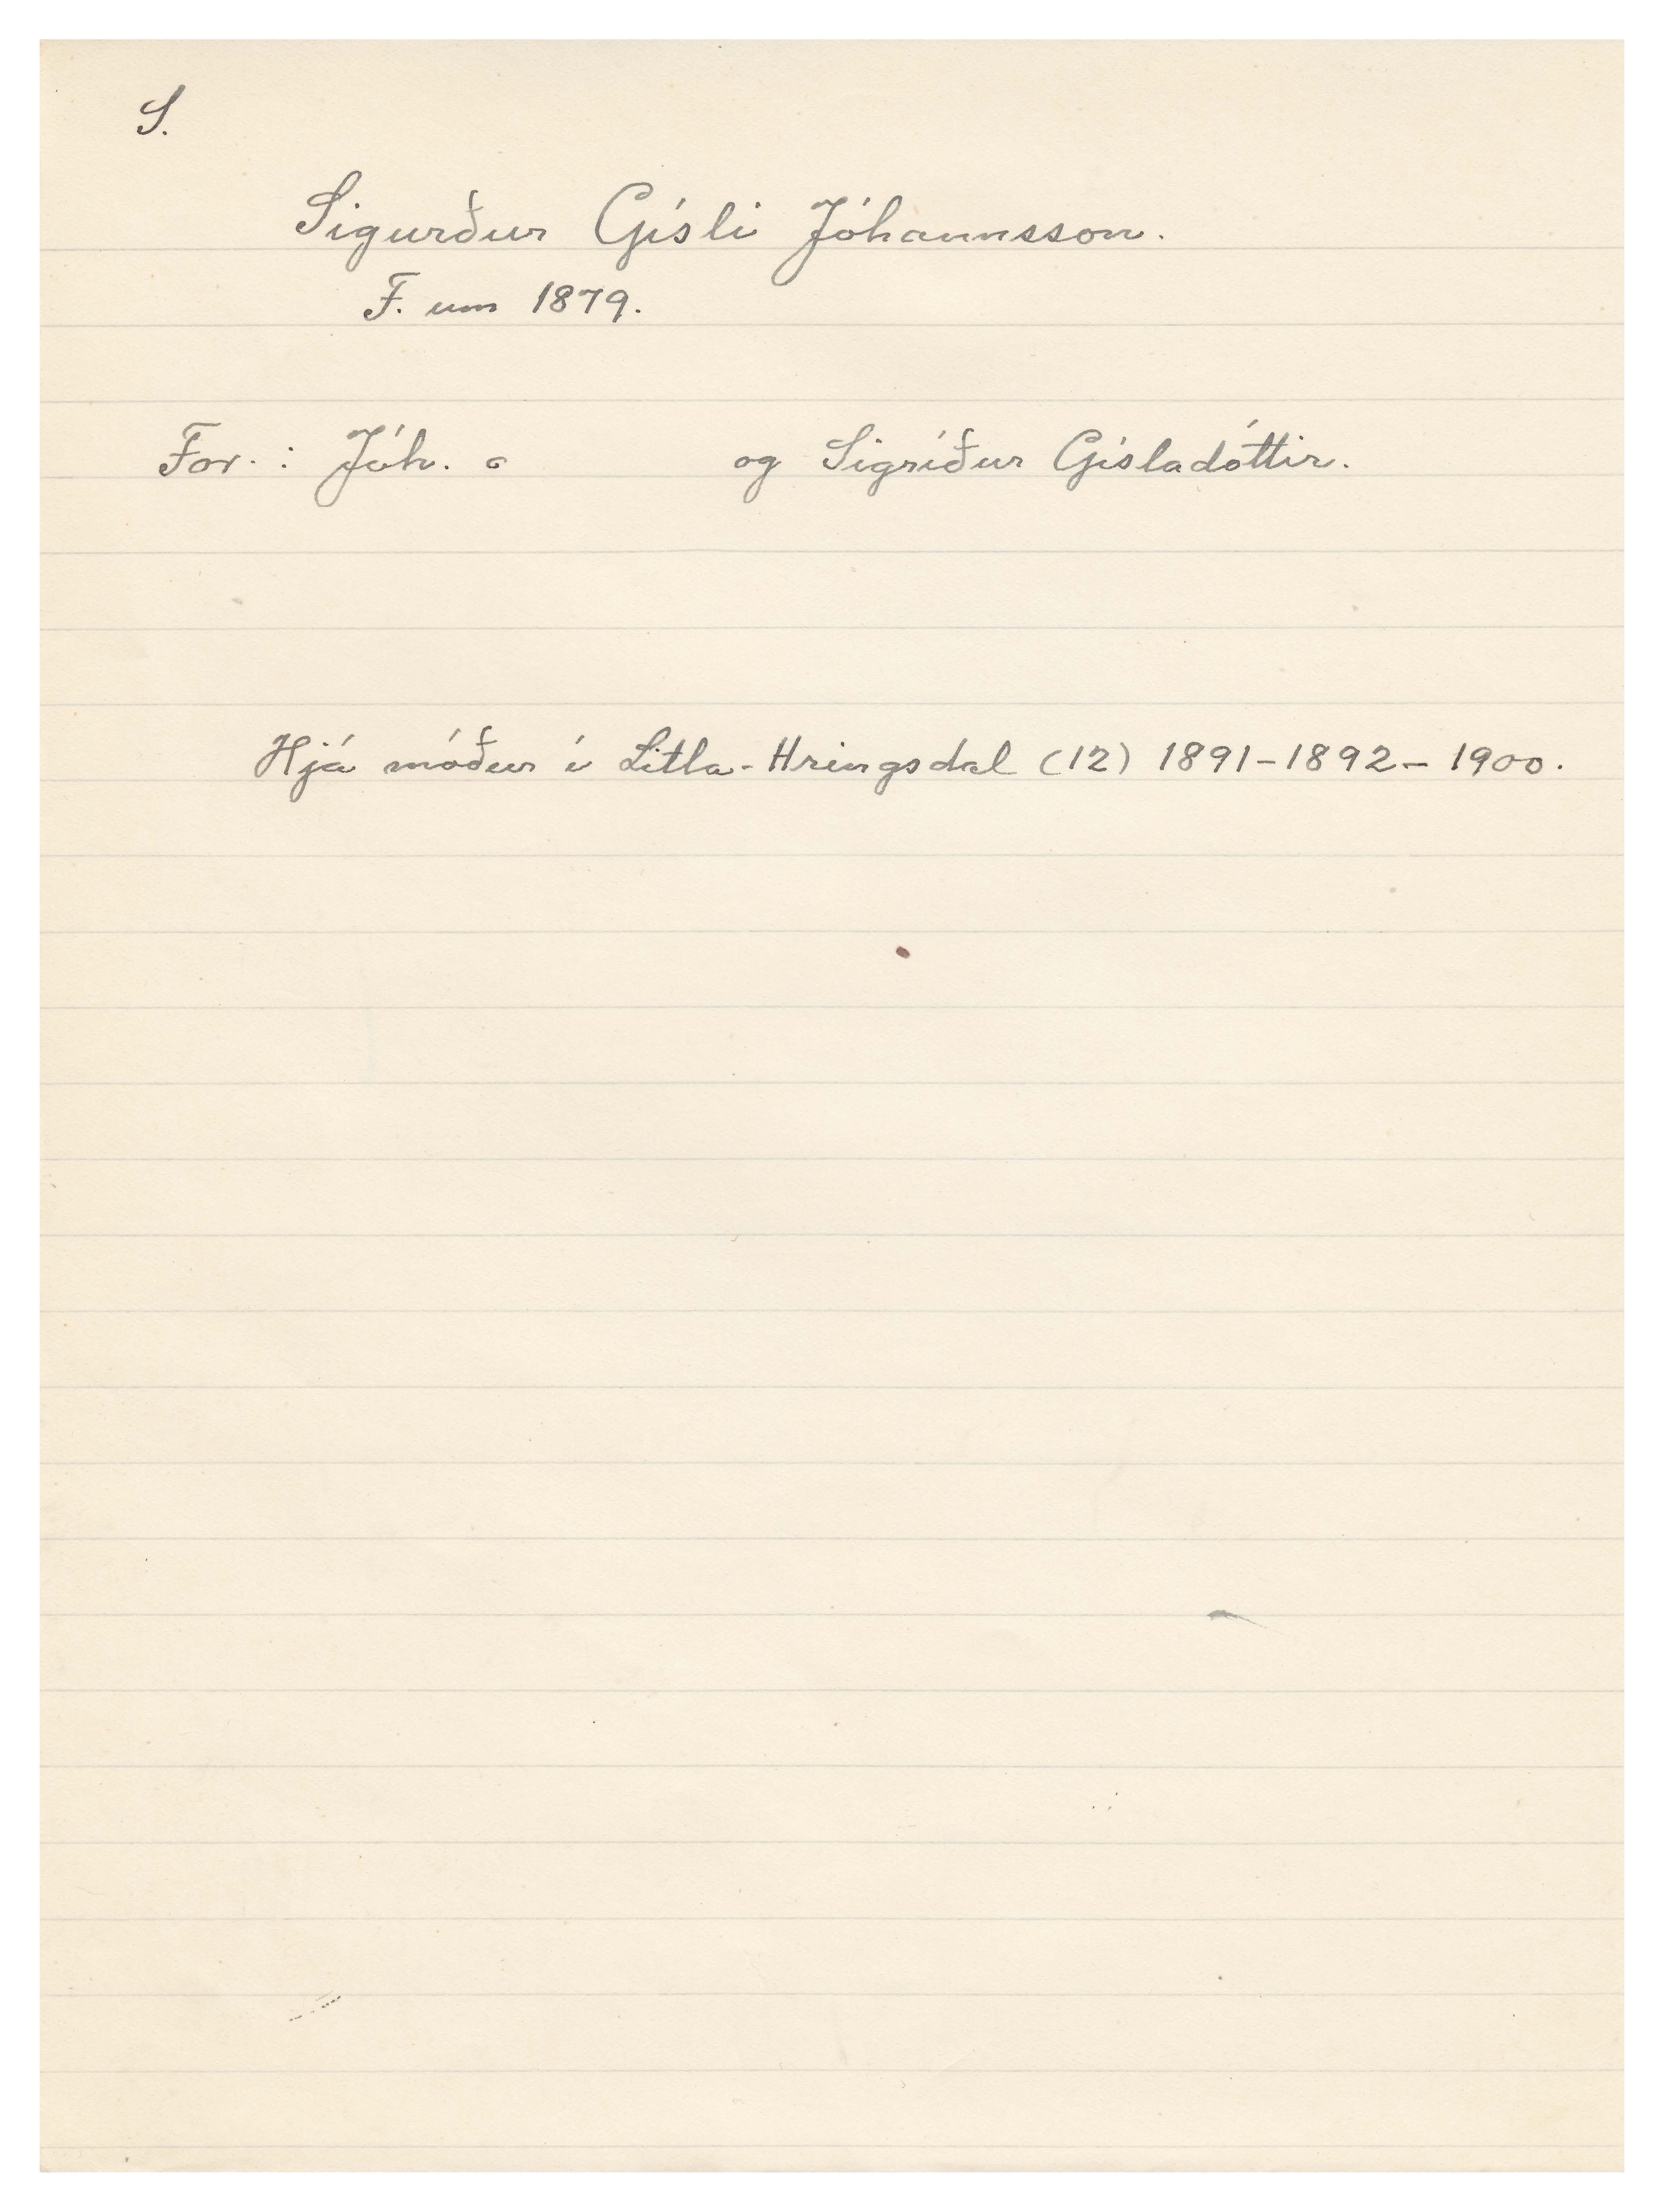 S.
Sigurður Gísli Jóhannsson.
F. um 1879.
For. : Jóh. og Sigríður Gísladóttir.
Hjá móður í Litla-Hringsdal (12) 1891-1892- 1900.